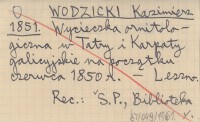 WODZICKI Kazimierz
1851. Wycieczka ornitolo-
giczna w Tatry i Karpaty
galicyjskie na początku
czerwca 1850 r. – Leszno.
Rec.: "S.P., Biblioteka